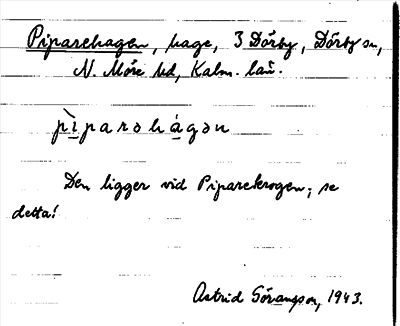 Piparehagen, hage, 3 Dörby, Dörby sn,
N. Möre hd, Kalm. län.
pìparəhágən
Den ligger vid Piparekrogen; se
detta!
Astrid Göransson, 1943.